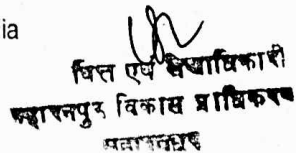 ia
वित्त एवं लेखाधिकारी
सहारनपुर विकास प्राधिकरण
सहारनपुर